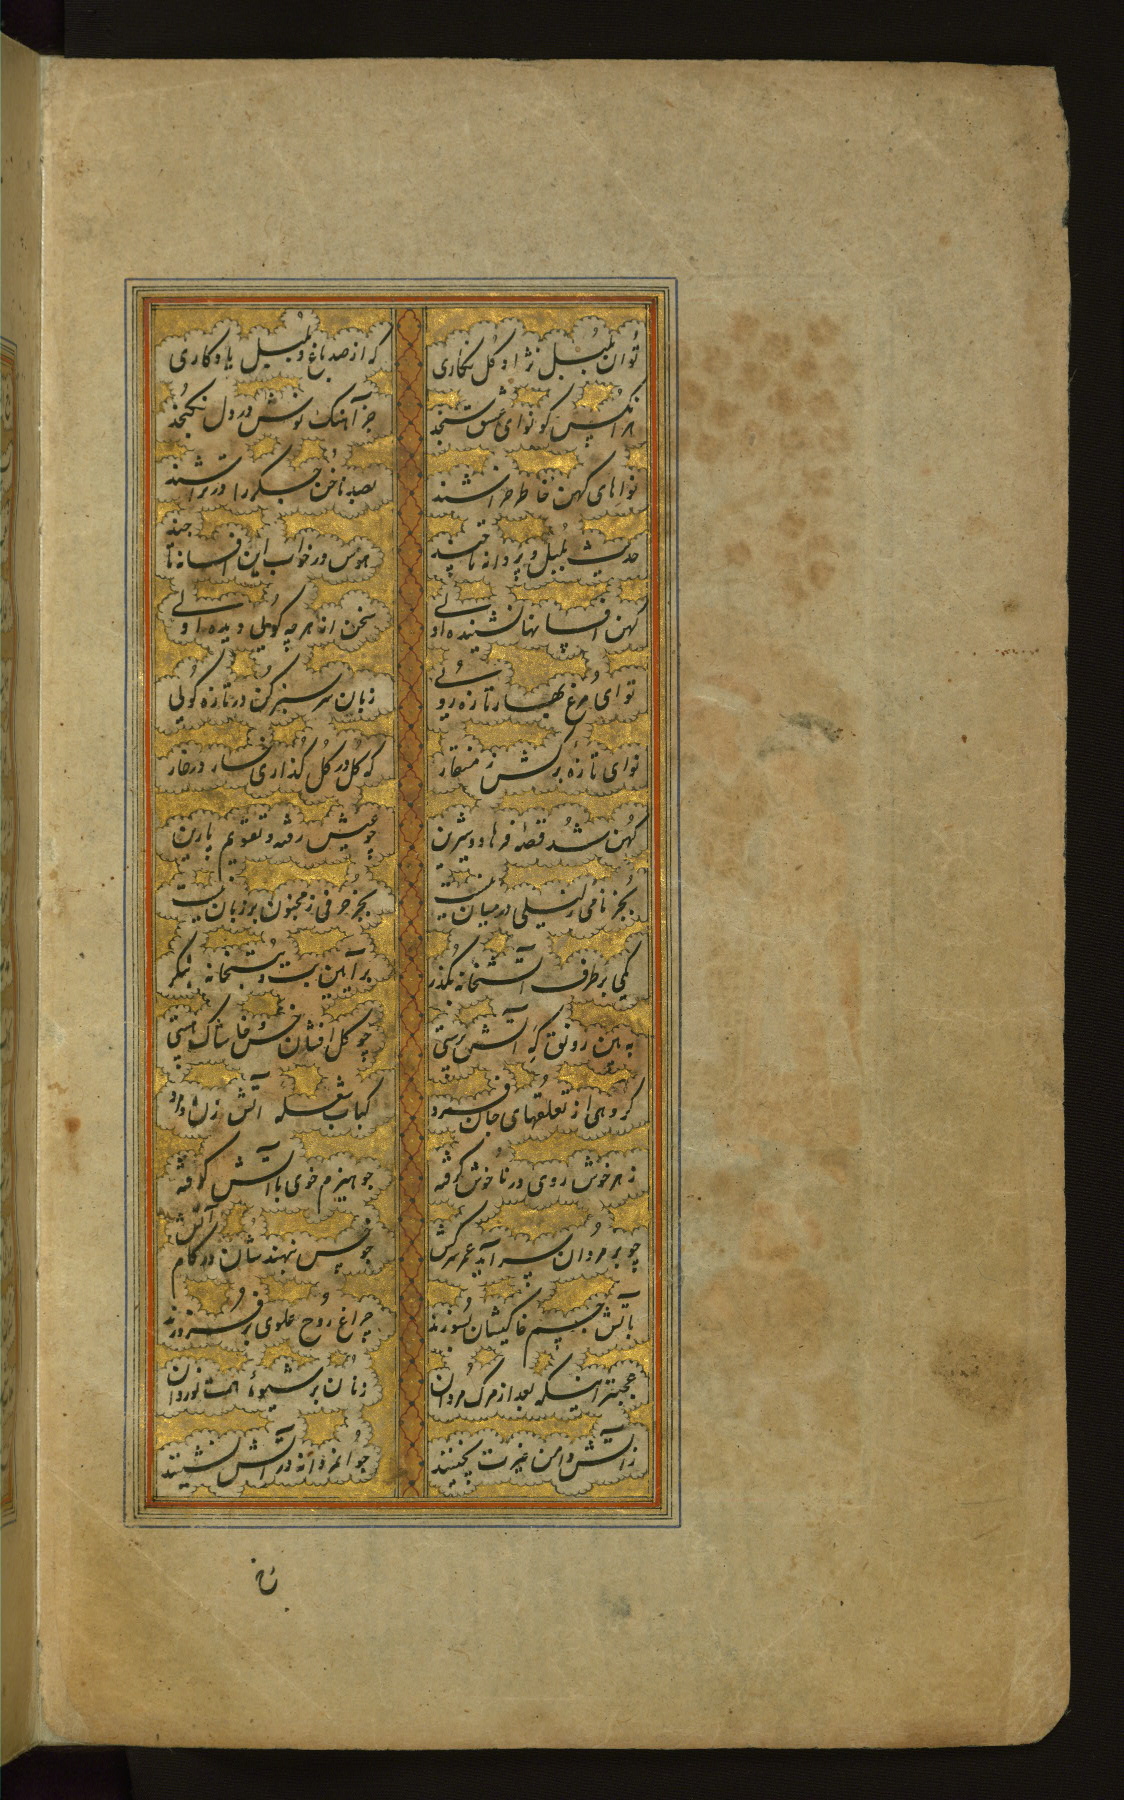 تو آن بلبل نژاد و گل نگاری که از صد باغ و بلبل یادگاری
هر آنکس کو نوای عشق سنجد جز آهنک نوش در دل نکنجد
نواهای کهن خاطر خراشند بصد ناخن جکر را در تراشند
حدیث بلبل و پروانه تا چند هوس در خواب این افسانه تا چند
کهن افسانها نشنیده اولی سخن از هرچه کوئی دیده اولی
تو ای مرغ بهار تازه روئی زبان سر سبز کن در تازه کوئی
نوای تازه برکش ز منقار که کل در کل کذاری خار در خار
کهن شد قصهٔ فرهاد و شیرین چو عیش رفته و تقویم پارین
بجز نامی ز لیلی در میان نیست بجز حرفی ز مجنون بر زبان نیست
یکی بر طرف آتشخانه بکذر بر آیین بت و بتخانه بنکر
به بین رونق که آتش پرستی چو کل افشان خس و خاشاک هستی
کروهی از تعلقهای جان فرد کباب شعله آتش زن و مرد
ز هر خوش روی در ناخوش کرفته چو هیزم خوی با آتش کرفته
چو بر مردان سر آید عمر سرکش چو خس نهندشان در کام آتش
بآتش جسم خاکیشان بسوزند چراغ روح علوی بر فروزند
عجبتر اینکه بعد از مرک مردان زنان بر شیوهٔ همت نوردان
ز آتش دامن غیرت نچینند جوانمردانه در آتش نشینند